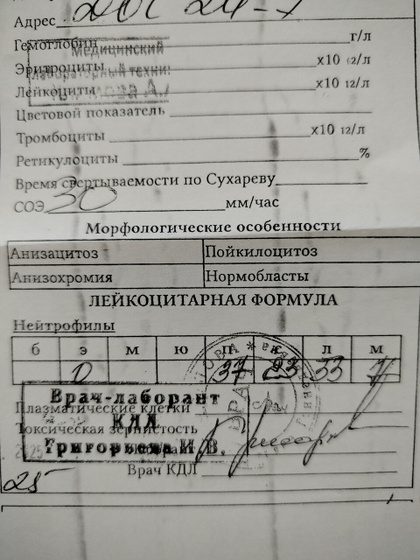 Адрес
Гемоглобин г/л
Медицинский
Эритроциты х10 12/л
лабораторный техник
Лейкоциты х10 12/л
Цветовой показатель
Тромбоциты х10 12/л
Ретикулоциты %
Время свертываемости по Сухареву
СОЭ 30 мм/час
Морфологические особенности
Анизацитоз Пойкилоцитоз
Анизохромия Нормобласты
ЛЕЙКОЦИТАРНАЯ ФОРМУЛА
Нейтрофилы
б э м ю п с л м
0 37 23 33 7
Врач-лаборант
Плазматические клетки
КДЛ
Токсическая зернистость
Григорьева И.В.
Врач КДЛ
25